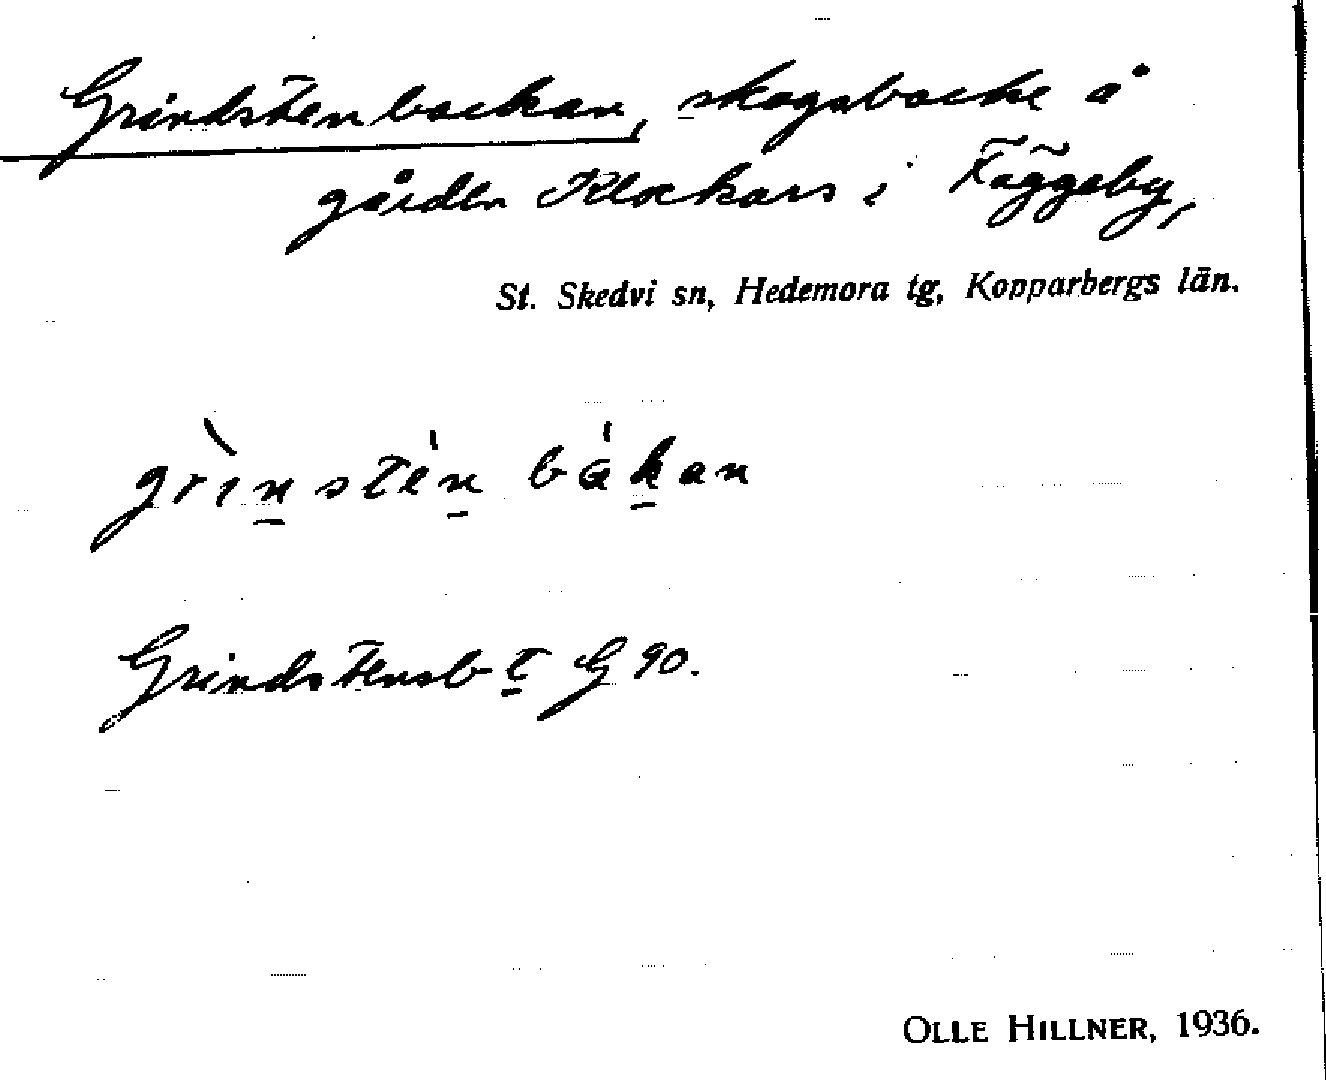 Grindstenbackan, skogsbacke å
gården Klockars i Fäggeby,
St. Skedvi sn, Hedemora tg, Kopparbergs län.
grìnstén bákan
Grindstensb t G 90.
OLLE HILLNER, 1936.